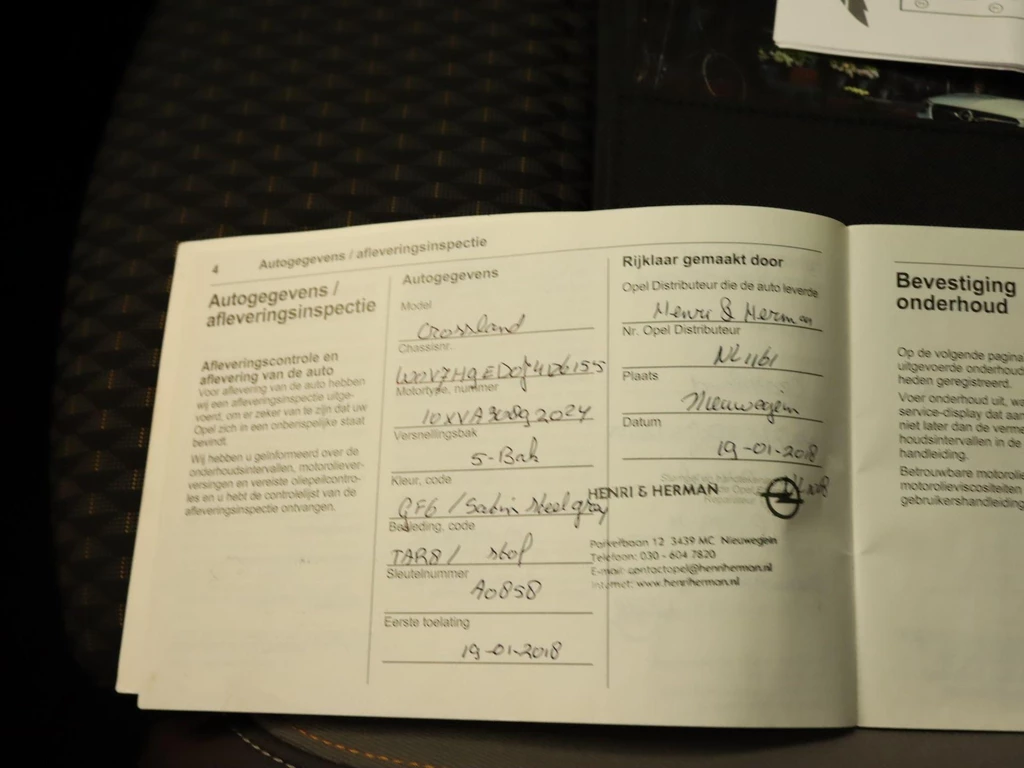 4 Autogegevens / afleveringsinspectie
Autogegevens /
afleveringsinspectie
Afleveringscontrole en
aflevering van de auto
Voor aflevering van de auto hebben
wij een afleveringsinspectie uitge-
voerd, om er zeker van te zijn dat uw
Opel zich in een onberispelijke staat
bevindt.
Wij hebben u geïnformeerd over de
onderhoudsintervallen, motoroliever-
versingen en vereiste oliepeilcontro-
les en u hebt de controlelijst van de
afleveringsinspectie ontvangen.
Autogegevens
Model
Crossland
Chassisnr.
Motortype, nummer
Versnellingsbak
5-Bak
Kleur, code
GF6 / Satin steel gray
Bekleding, code
TAR8 / stof
Sleutelnummer
A0858
Eerste toelating
19-01-2018
Rijklaar gemaakt door
Opel Distributeur die de auto leverde
Henri & Herman
Nr. Opel Distributeur
NL1161
Plaats
Nieuwegein
Datum
19-01-2018
HENRI & HERMAN
Parkerbaan 12 3439 MC Nieuwegein
Telefoon: 030 - 604 7820
E-mail: contactopel@henriherman.nl
Internet: www.henriherman.nl
Bevestiging
onderhoud
Op de volgende pagina
uitgevoerde onderhoud
heden geregistreerd.
Voer onderhoud uit, wa
service-display dat aan
niet later dan de verme
houdsintervallen in de
handleiding.
Betrouwbare motorolie
motorolieviscositeiten
gebruikershandleiding